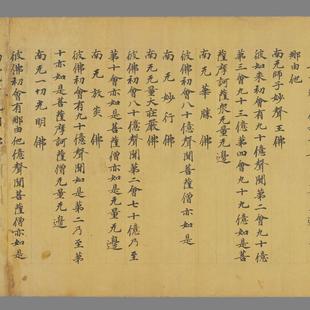 那由他
南无師子妙聲王佛
彼如来初會有九十億聲聞第二會九十億
第三會九十三億第四會九十九億如是菩
薩摩訶薩衆无量无邊
南无華勝佛
彼佛初會八十億聲聞菩薩僧亦如是
南无妙行佛
南无无量大莊嚴佛
彼佛初會八十億聲聞第二會七十億乃至
第十會亦如是菩薩摩訶薩僧无量无邊
南无放炎佛
彼佛初會有九十億聲聞如是第二乃至第
十亦如是菩薩摩訶薩僧亦如是无量无邊
南无一切光明佛
彼佛初會有那由他億聲聞菩薩僧亦如是